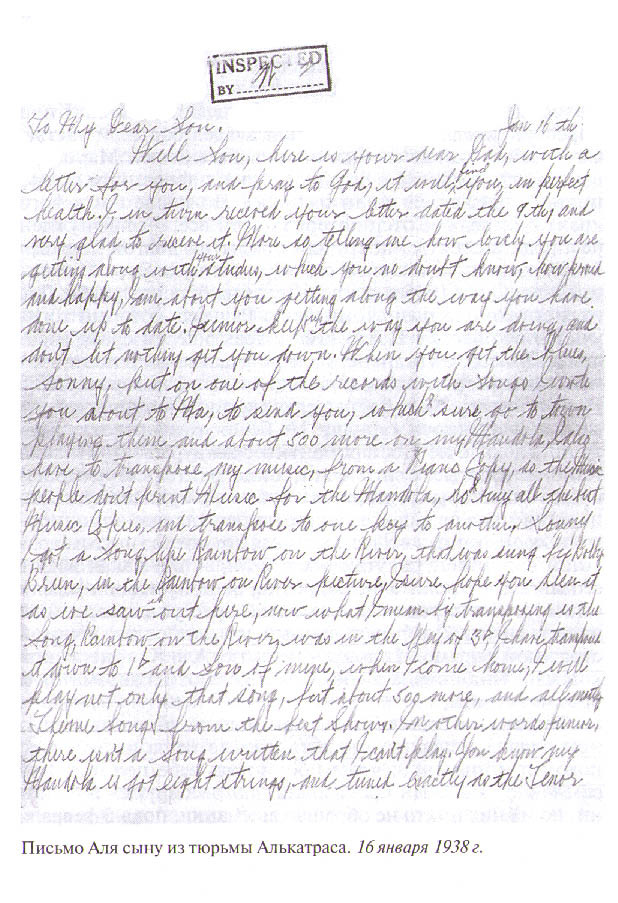 INSPECTED
BY
To My Dear Son. Jan 16 th.
Well Son, here is your dear Dad, with a
letter for you, and pray to God, it will, find you, in perfect
health. I in turn receved your letter dated the 9th, and
very glad to receve it. More so telling me how lovely you are
getting along with your studies, which you no doubt know, how proud
and happy, I am about you getting along the way you have
done up to date. Junior keep up the way you are doing, and
don't let nothing get you down. When you get the blues,
Sonny, put on one of the records with songs I wrote
you about to Ma, to send you, which I sure go to town
playing them and about 500 more on my Mandola, I also
have to transpose my music, from a Piano Copy, as the Music
people don't print Music for the Mandola, so I buy all the best
Music Copies, and transpose to one key to another. Sonny
I got a song like Rainbow on the River, that was sung by Bobby
Brien, in the Rainbow on River picture, I sure hope you seen it
as we saw out here, now what I mean by transposing is the
Song, Rainbow on the River, was in the Key of 3 I have transposed
it down to 1 and Son of mine, when I come home, I will
play not only that song, but about 500 more, and all mostly
Theme Songs from the best Shows. In other words Junior,
there isn't a song written that I can't play. You know my
Mandola is got eight strings, and tuned exactly as the Tenor
Письмо Аля сыну из тюрьмы Алькатраса. 16 января 1938 г.